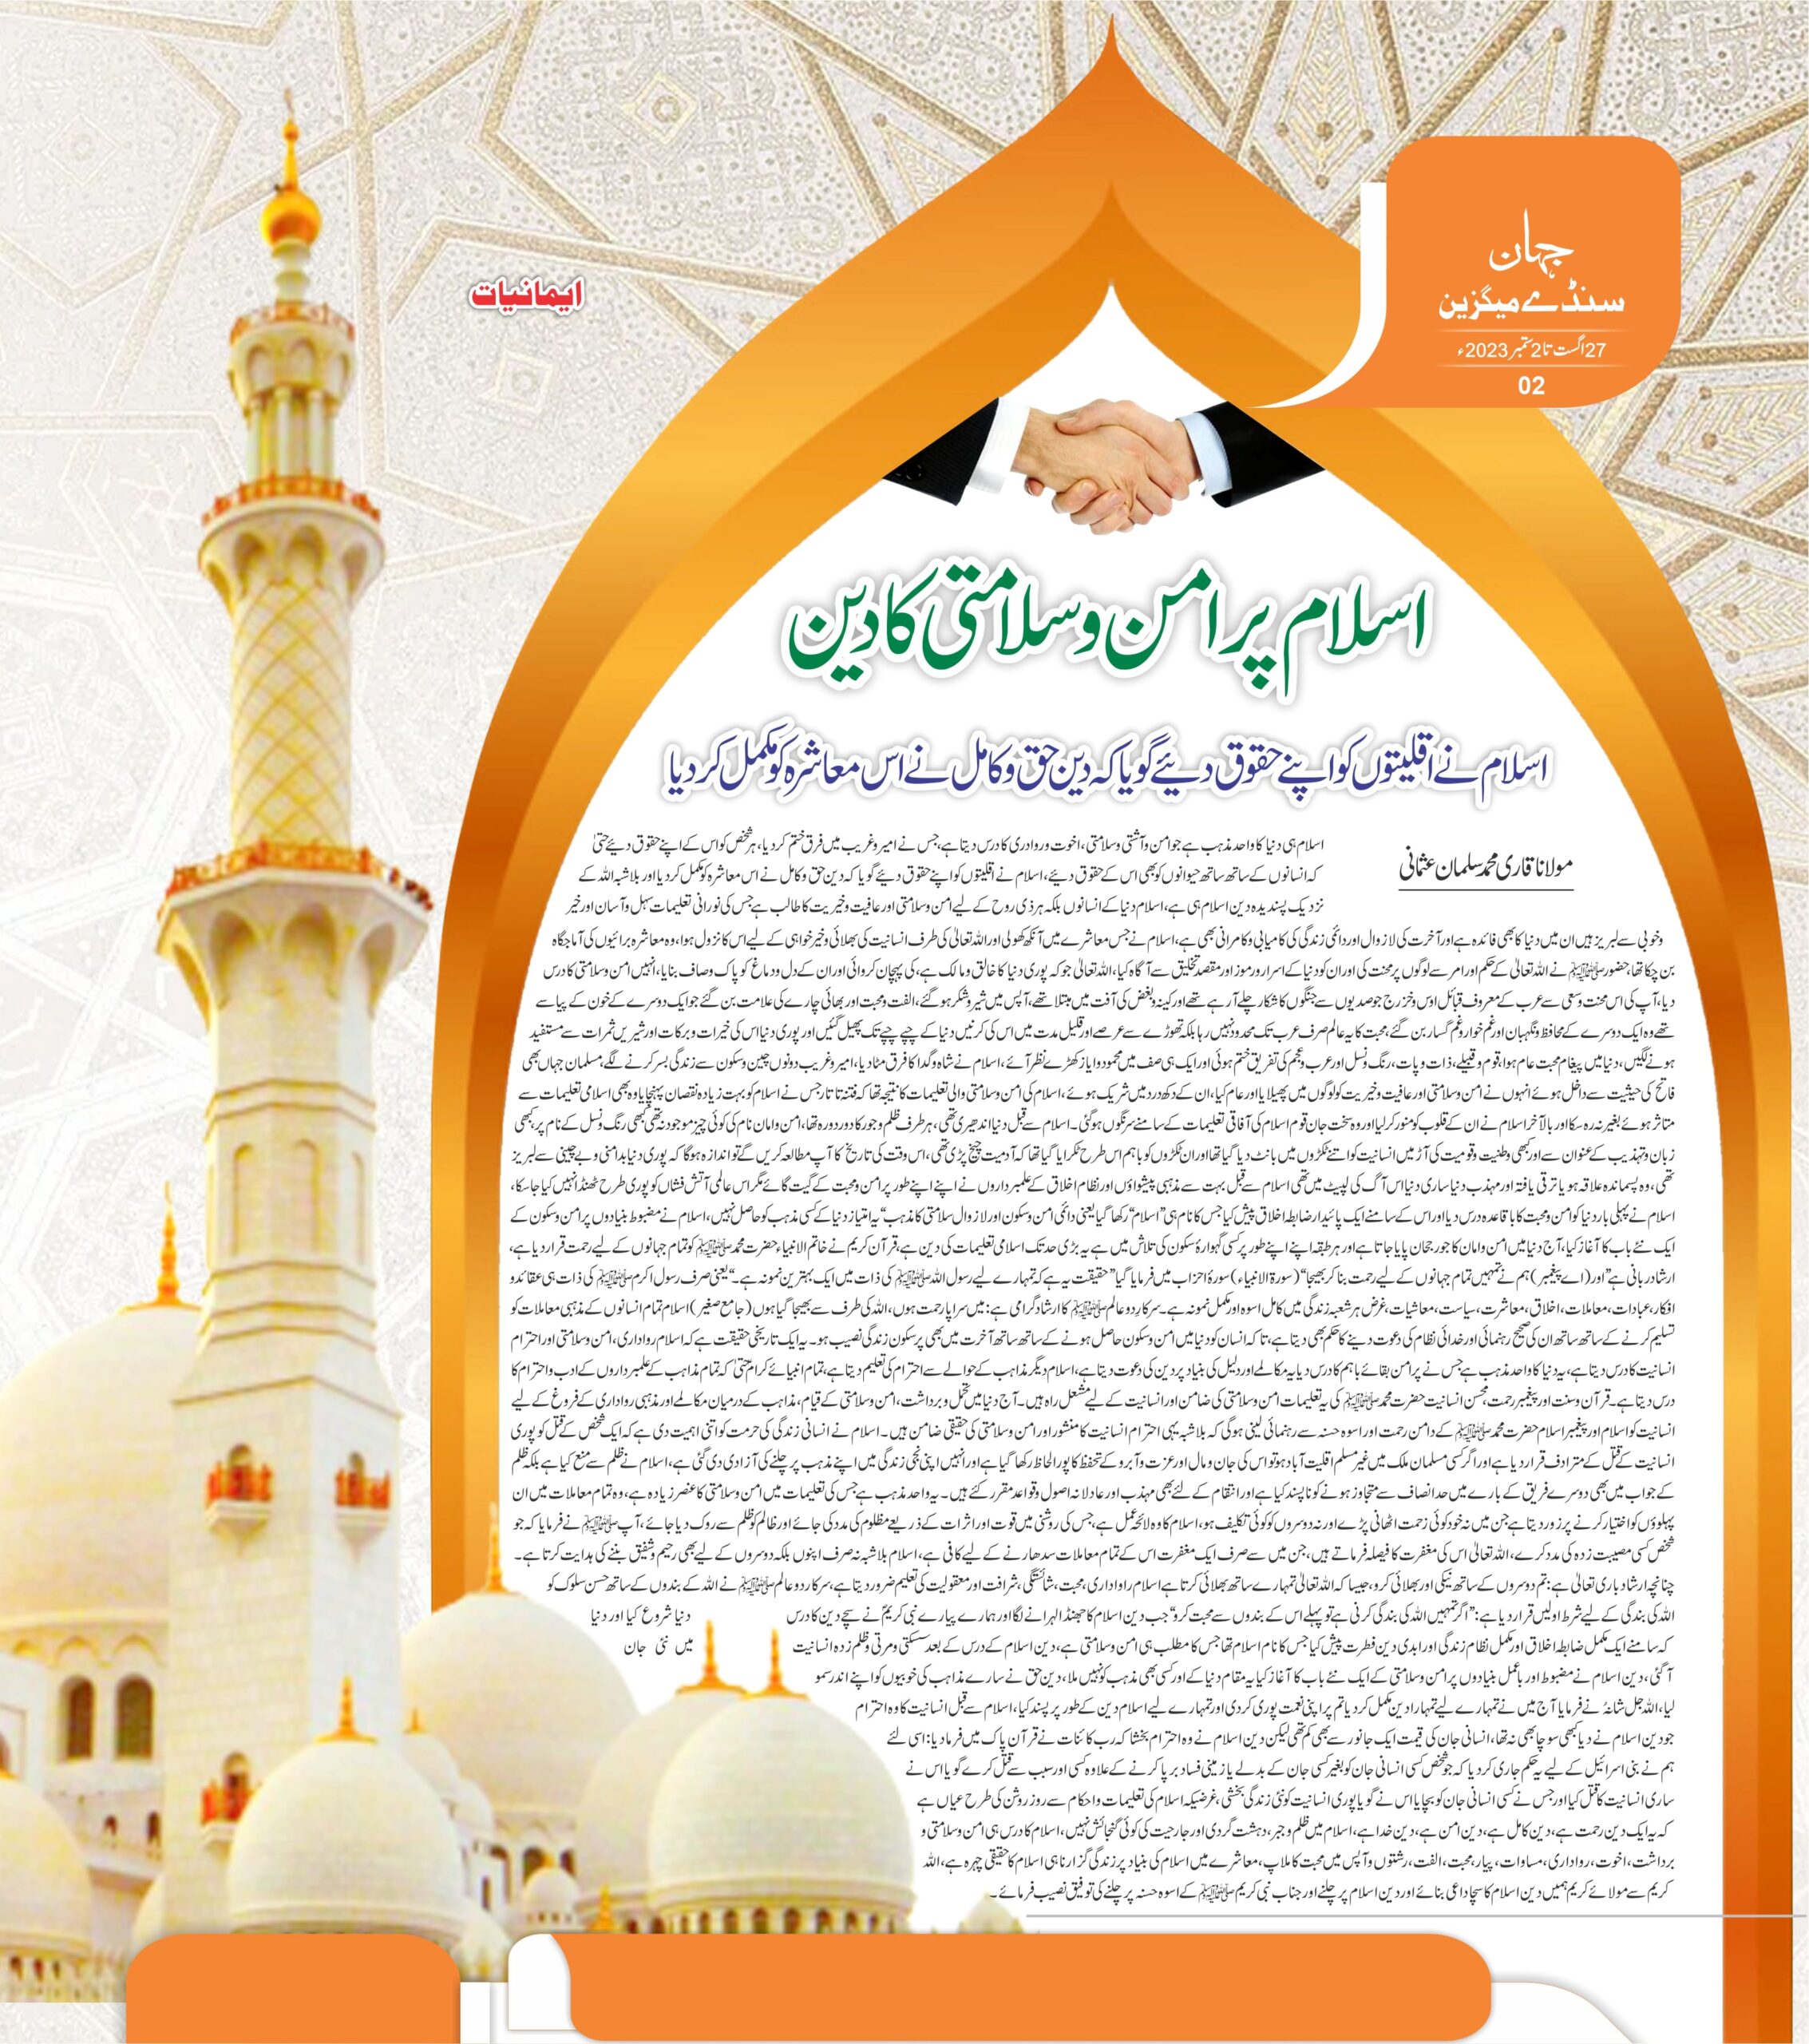 جہان
سنڈے میگزین
27اگست تا2ستمبر2023ء
02
ایمانیات
اسلام پرامن وسلامتی کادین
اسلام نے اقلیتوں کو اپنے حقوق دیئے گویا کہ دین حق و کامل نے اس معاشرہ کو مکمل کردیا
مولانا قاری محمد سلمان عثمانی
اسلام ہی دنیا کا واحد مذہب ہے جو امن وآشتی وسلامتی، اخوت ورواداری کا درس دیتا ہے، جس نے امیر وغریب میں فرق ختم کردیا، ہر شخص کو اس کے اپنے حقوق دیئے حتیٰ
کہ انسانوں کے ساتھ ساتھ حیوانوں کو بھی اس کے حقوق دیئے، اسلام نے اقلیتوں کو اپنے حقوق دیئے گویا کہ دین حق وکامل نے اس معاشرہ کو مکمل کردیا اور بلاشبہ اللہ کے
نزدیک پسندیدہ دین اسلام ہی ہے، اسلام دنیا کے انسانوں بلکہ ہر ذی روح کے لیے امن وسلامتی اور عافیت وخیریت کا طالب ہے جس کی نورانی تعلیمات سہل وآسان اور خیر
وخوبی سے لبریز ہیں ان میں دنیا کا بھی فائدہ ہے اور آخرت کی لازوال اور دائمی زندگی کی کامیابی وکامرانی بھی ہے، اسلام نے جس معاشرے میں آنکھ کھولی اور اللہ تعالیٰ کی طرف انسانیت کی بھلائی وخیرخواہی کے لیے اس کا نزول ہوا، وہ معاشرہ برائیوں کی آماجگاہ
بن چکا تھا، حضور ﷺ نے اللہ تعالیٰ کے حکم اور امر سے لوگوں پر محنت کی اور ان کو دنیا کے اسرار ورموز اور مقصد تخلیق سے آگاہ کیا، اللہ تعالیٰ جو کہ پوری دنیا کا خالق ومالک ہے، کی پہچان کروائی اور ان کے دل ودماغ کو پاک وصاف بنایا، انہیں امن وسلامتی کا درس
دیا، آپ کی اس محنت وسعی سے عرب کے معروف قبائل اوس وخزرج جو صدیوں سے جنگوں کا شکار چلے آرہے تھے اور کینہ وبغض کی آفت میں مبتلا تھے، آپس میں شیر وشکر ہوگئے، الفت ومحبت اور بھائی چارے کی علامت بن گئے جو ایک دوسرے کے خون کے پیاسے
تھے وہ ایک دوسرے کے محافظ ونگہبان اور غم خوار وغم گسار بن گئے، محبت کا یہ عالم صرف عرب تک محدود نہیں رہا بلکہ تھوڑے سے عرصے اور قلیل مدت میں اس کی کرنیں دنیا کے چپے چپے تک پھیل گئیں اور پوری دنیا اس کی خیرات وبرکات اور شیریں ثمرات سے مستفید
ہونے لگیں، دنیا میں پیغام محبت عام ہوا، قوم وقبیلے، ذات وپات، رنگ ونسل اور عرب وعجم کی تفریق ختم ہوئی اور ایک ہی صف میں محمود وایاز کھڑے نظر آئے، اسلام نے شاہ وگدا کا فرق مٹادیا، امیر وغریب دونوں چین وسکون سے زندگی بسر کرنے لگے، مسلمان جہاں بھی
فاتح کی حیثیت سے داخل ہوئے انہوں نے امن وسلامتی اور عافیت وخیریت کو لوگوں میں پھیلایا اور عام کیا، ان کے دکھ درد میں شریک ہوئے، اسلام کی امن وسلامتی والی تعلیمات کا نتیجہ تھا کہ فتنہ تاتار جس نے اسلام کو بہت زیادہ نقصان پہنچایا وہ بھی اسلامی تعلیمات سے
متاثر ہوئے بغیر نہ رہ سکا اور بالآخر اسلام نے ان کے قلوب کو منور کرلیا اور وہ سخت جان قوم اسلام کی آفاقی تعلیمات کے سامنے سرنگوں ہوگئی۔ اسلام سے قبل دنیا اندھیری تھی، ہر طرف ظلم وجور کا دور دورہ تھا، امن وامان نام کی کوئی چیز موجود نہ تھی کبھی رنگ ونسل کے نام پر، کبھی
زبان وتہذیب کے عنوان سے اور کبھی وطنیت وقومیت کی آڑ میں انسانیت کو اتنے ٹکڑوں میں بانٹ دیا گیا تھا اور ان ٹکڑوں کو باہم اس طرح ٹکرایا گیا تھا کہ آدمیت چیخ پڑی تھی، اس وقت کی تاریخ کا آپ مطالعہ کریں گے تو اندازہ ہوگا کہ پوری دنیا بدامنی وبے چینی سے لبریز
تھی، وہ پسماندہ علاقہ ہو یا ترقی یافتہ اور مہذب دنیا ساری دنیا اس آگ کی لپیٹ میں تھی اسلام سے قبل بہت سے مذہبی پیشواؤں اور نظام اخلاق کے علمبرداروں نے اپنے اپنے طور پر امن ومحبت کے گیت گائے مگر اس عالمی آتش فشاں کو پوری طرح ٹھنڈا نہیں کیا جاسکا،
اسلام نے پہلی بار دنیا کو امن ومحبت کا باقاعدہ درس دیا اور اس کے سامنے ایک پائیدار ضابطہ اخلاق پیش کیا جس کا نام ہی "اسلام" رکھا گیا یعنی دائمی امن وسکون اور لازوال سلامتی کا مذہب "یہ امتیاز دنیا کے کسی مذہب کو حاصل نہیں، اسلام نے مضبوط بنیادوں پر امن وسکون کے
ایک نئے باب کا آغاز کیا، آج دنیا میں امن وامان کا جو رجحان پایا جاتا ہے اور ہر طبقہ اپنے اپنے طور پر کسی گہوارۂ سکون کی تلاش میں ہے یہ بڑی حد تک اسلامی تعلیمات کی دین ہے، قرآن کریم نے خاتم الانبیاء حضرت محمد ﷺ کو تمام جہانوں کے لیے رحمت قرار دیا ہے،
ارشاد ربانی ہے "اور (اے پیغمبر) ہم نے تمہیں تمام جہانوں کے لیے رحمت بنا کر بھیجا" (سورۃ الانبیاء) سورۂ احزاب میں فرمایا گیا "حقیقت یہ ہے کہ تمہارے لیے رسول اللہ ﷺ کی ذات میں ایک بہترین نمونہ ہے۔" یعنی صرف رسول اکرم ﷺ کی ذات ہی عقائد و
افکار، عبادات، معاملات، اخلاق، معاشرت، سیاست، معاشیات، غرض ہر شعبہ زندگی میں کامل اسوہ اور مکمل نمونہ ہے۔ سرکار دو عالم ﷺ کا ارشاد گرامی ہے: میں سراپا رحمت ہوں، اللہ کی طرف سے بھیجا گیا ہوں (جامع صغیر) اسلام تمام انسانوں کے مذہبی معاملات کو
تسلیم کرنے کے ساتھ ساتھ ان کی صحیح رہنمائی اور خدائی نظام کی دعوت دینے کا حکم بھی دیتا ہے، تاکہ انسان کو دنیا میں امن وسکون حاصل ہونے کے ساتھ ساتھ آخرت میں بھی پرسکون زندگی نصیب ہو۔ یہ ایک تاریخی حقیقت ہے کہ اسلام رواداری، امن وسلامتی اور احترام
انسانیت کا درس دیتا ہے، یہ دنیا کا واحد مذہب ہے جس نے پرامن بقائے باہم کا درس دیا یہ مکالمے اور دلیل کی بنیاد پر دین کی دعوت دیتا ہے، اسلام دیگر مذاہب کے حوالے سے احترام کی تعلیم دیتا ہے، تمام انبیائے کرام حتیٰ کہ تمام مذاہب کے علمبرداروں کے ادب واحترام کا
درس دیتا ہے۔ قرآن وسنت اور پیغمبر رحمت، محسن انسانیت حضرت محمد ﷺ کی یہ تعلیمات امن وسلامتی کی ضامن اور انسانیت کے لیے مشعل راہ ہیں۔ آج دنیا میں تحمل وبرداشت، امن وسلامتی کے قیام، مذاہب کے درمیان مکالمے اور مذہبی رواداری کے فروغ کے لیے
انسانیت کو اسلام اور پیغمبر اسلام حضرت محمد ﷺ کے دامن رحمت اور اسوہ حسنہ سے رہنمائی لینی ہوگی کہ بلاشبہ یہی احترام انسانیت کا منشور اور امن وسلامتی کی حقیقی ضامن ہیں۔ اسلام نے انسانی زندگی کی حرمت کو اتنی اہمیت دی ہے کہ ایک شخص کے قتل کو پوری
انسانیت کے قتل کے مترادف قرار دیا ہے اور اگر کسی مسلمان ملک میں غیر مسلم اقلیت آباد ہو تو اس کی جان ومال اور عزت وآبرو کے تحفظ کا پورا لحاظ رکھا گیا ہے اور انہیں اپنی نجی زندگی میں اپنے مذہب پر چلنے کی آزادی دی گئی ہے، اسلام نے ظلم سے منع کیا ہے بلکہ ظلم
کے جواب میں بھی دوسرے فریق کے بارے میں حد انصاف سے متجاوز ہونے کو ناپسند کیا ہے اور انتقام کے لئے بھی مہذب اور عادلانہ اصول وقواعد مقرر کئے ہیں۔ یہ واحد مذہب ہے جس کی تعلیمات میں امن وسلامتی کا عنصر زیادہ ہے، وہ تمام معاملات میں ان
پہلوؤں کو اختیار کرنے پر زور دیتا ہے جن میں نہ خود کوئی زحمت اٹھانی پڑے اور نہ دوسروں کو کوئی تکلیف ہو، اسلام کا وہ لائحہ عمل ہے، جس کی روشنی میں قوت اور اثرات کے ذریعے مظلوم کی مدد کی جائے اور ظالم کو ظلم سے روک دیا جائے، آپ ﷺ نے فرمایا کہ جو
شخص کسی مصیبت زدہ کی مدد کرے، اللہ تعالیٰ اس کی مغفرت کا فیصلہ فرماتے ہیں، جن میں سے صرف ایک مغفرت اس کے تمام معاملات سدھارنے کے لیے کافی ہے، اسلام بلاشبہ نہ صرف اپنوں بلکہ دوسروں کے لیے بھی رحیم وشفیق بننے کی ہدایت کرتا ہے۔
چنانچہ ارشاد باری تعالیٰ ہے: تم دوسروں کے ساتھ نیکی اور بھلائی کرو، جیسا کہ اللہ تعالیٰ تمہارے ساتھ بھلائی کرتا ہے اسلام راواداری، محبت، شائستگی، شرافت اور معقولیت کی تعلیم ضرور دیتا ہے، سرکار دو عالم ﷺ نے اللہ کے بندوں کے ساتھ حسن سلوک کو
اللہ کی بندگی کے لیے شرط اولیں قرار دیا ہے: "اگر تمہیں اللہ کی بندگی کرنی ہے تو پہلے اس کے بندوں سے محبت کرو" جب دین اسلام کا جھنڈا لہرانے لگا اور ہمارے پیارے نبی کریم ؐ نے سچے دین کا درس دنیا شروع کیا اور دنیا
کہ سامنے ایک مکمل ضابطہ اخلاق اور مکمل نظام زندگی اور ابدی دین فطرت پیش کیا جس کا نام اسلام تھا جس کا مطلب ہی امن وسلامتی ہے، دین اسلام کے درس کے بعد سسکتی ومرتی وظلم زدہ انسانیت میں نئی جان
آگئی، دین اسلام نے مضبوط اور باعمل بنیادوں پر امن وسلامتی کے ایک نئے باب کا آغاز کیا یہ مقام دنیا کے اور کسی بھی مذہب کو نہیں ملا، دین حق نے سارے مذاہب کی خوبیوں کو اپنے اندر سمو
لیا، اللہ جل شانہ نے فرمایا آج میں نے تمہارے لیے تمہارا دین مکمل کردیا تم پر اپنی نعمت پوری کردی اور تمہارے لیے اسلام دین کے طور پر پسند کیا، اسلام سے قبل انسانیت کا وہ احترام
جو دین اسلام نے دیا کبھی سوچا بھی نہ تھا، انسانی جان کی قیمت ایک جانور سے بھی کم تھی لیکن دین اسلام نے وہ احترام بخشا کہ رب کائنات نے قرآن پاک میں فرمادیا: اسی لئے
ہم نے بنی اسرائیل کے لیے یہ حکم جاری کردیا کہ جو شخص کسی انسانی جان کو بغیر کسی جان کے بدلے یا زمینی فساد برپا کرنے کے علاوہ کسی اور سبب سے قتل کرے گویا اس نے
ساری انسانیت کا قتل کیا اور جس نے کسی انسانی جان کو بچایا اس نے گویا پوری انسانیت کو نئی زندگی بخشی، غرضیکہ اسلام کی تعلیمات واحکام سے روز روشن کی طرح عیاں ہے
کہ یہ ایک دین رحمت ہے، دین کامل ہے، دین امن ہے، دین خدا ہے، اسلام میں ظلم وجبر، دہشت گردی اور جارحیت کی کوئی گنجائش نہیں، اسلام کا درس ہی امن وسلامتی و
برداشت، اخوت، رواداری، مساوات، پیار، محبت، الفت، رشتوں و آپس میں محبت کا ملاپ، معاشرے میں اسلام کی بنیاد پر زندگی گزارنا ہی اسلام کا حقیقی چہرہ ہے، اللہ
کریم سے مولائے کریم ہمیں دین اسلام کا سچا داعی بنائے اور دین اسلام پر چلنے اور جناب نبی کریم ﷺ کے اسوہ حسنہ پر چلنے کی توفیق نصیب فرمائے۔